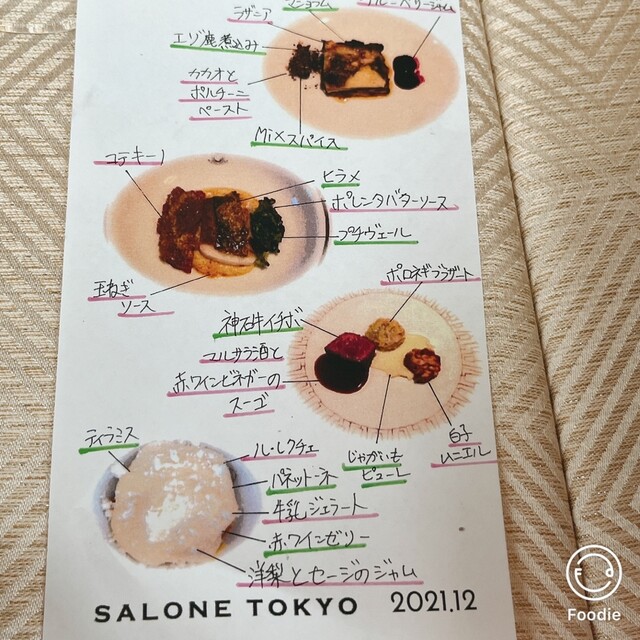 ラザニア
マジョラム
ブルーベリージャム
エゾ鹿煮込み
カカオと
ポルチーニ
ペースト
Mixスパイス
コテキーノ
ヒラメ
ポレンタバターソース
プチヴェール
玉ねぎ
ソース
ポロネギブラザート
神石牛イチボ
マルサラ酒と
赤ワインビネガーの
スーゴ
じゃがいも
ピューレ
白子
ムニエル
ティラミス
ル・レクチェ
パネットーネ
牛乳ジェラート
赤ワインゼリー
洋梨とセージのジャム
SALONE TOKYO 2021.12
Foodie